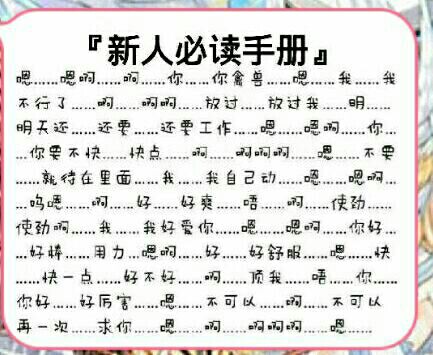 『新人必读手册』
嗯……嗯啊……啊……你……你禽兽……嗯……我……我
不行了……啊……啊啊……放过……放过我……明……
明天还……还要……还要工作……嗯……嗯啊……你…
…你要不快……快点……啊……啊啊啊……嗯……不要
……就待在里面……我……我自己动……嗯……嗯啊…
…呜嗯……啊……好……好爽……唔……啊……使劲……
使劲啊……我……我好爱你……嗯……嗯啊……你好…
…好棒……用力…嗯啊……好……好舒服……嗯……快
……快一点……好不好……啊……顶我……唔……你……
你好……好厉害……嗯……不可以……啊……不可以
再一次……求你……嗯……啊……啊啊啊……嗯……